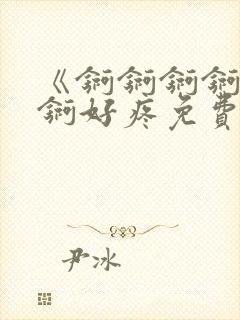 《锕锕锕锕
锕好疼免費
尹冰